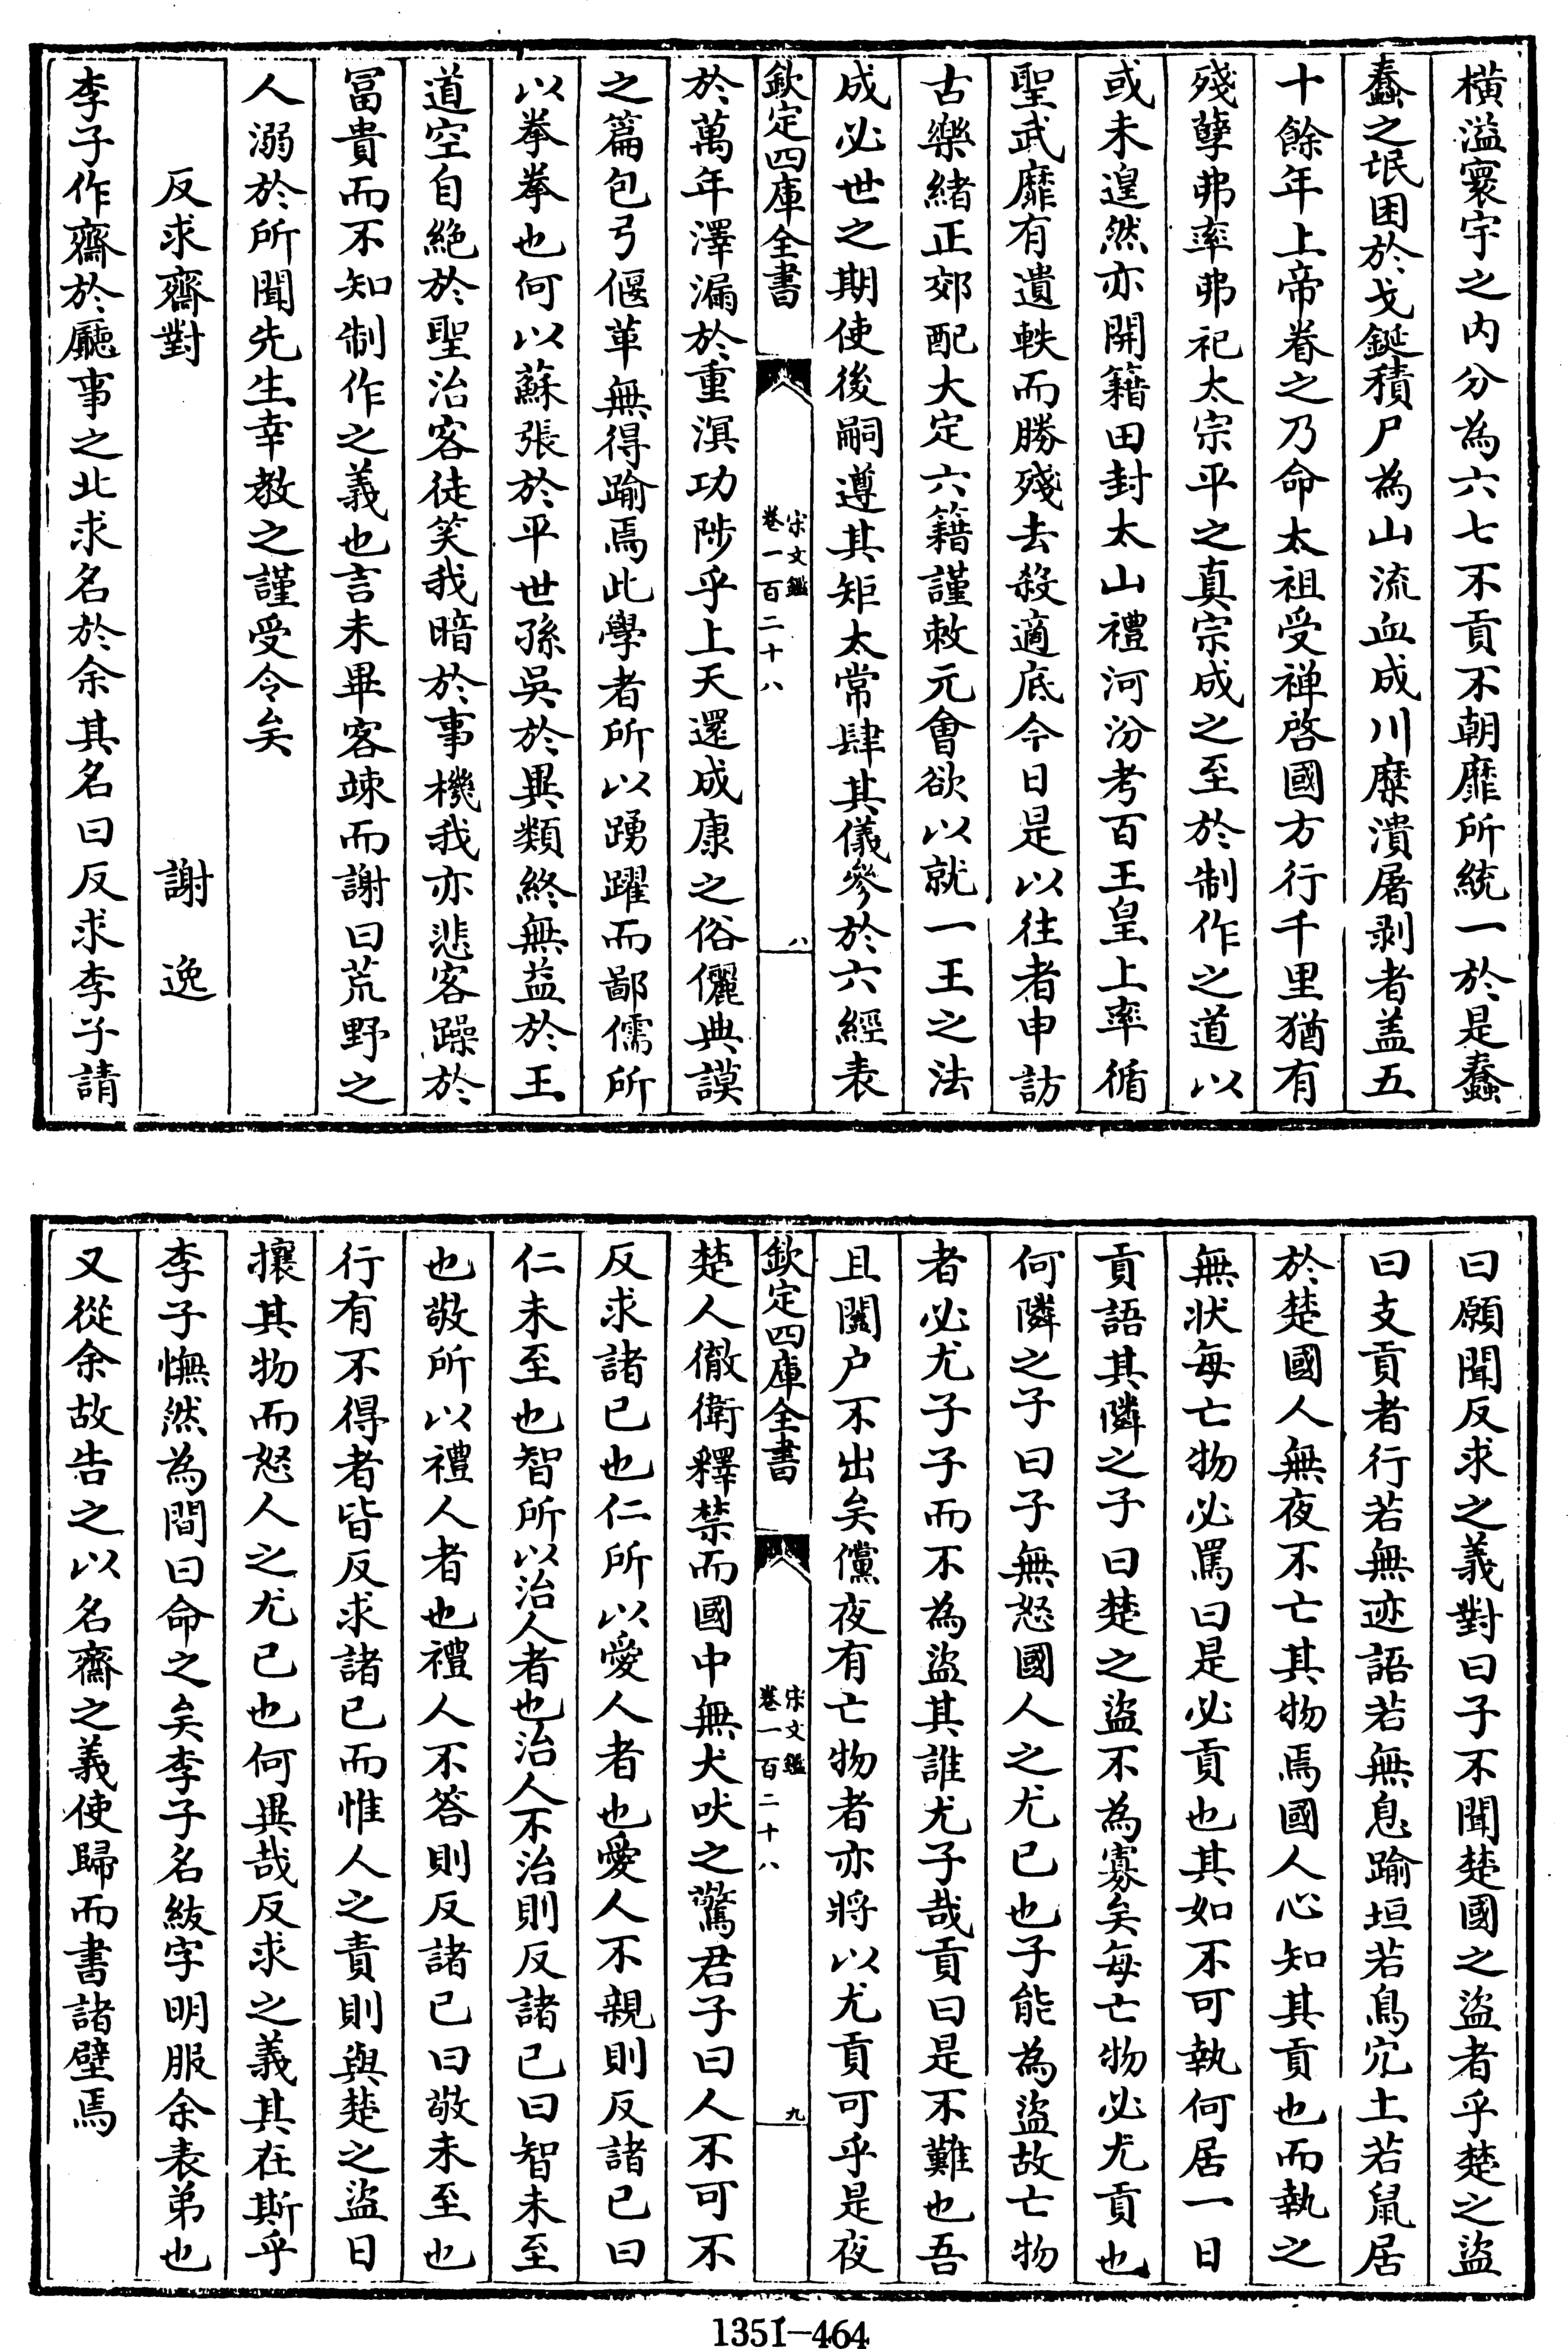 橫溢寰宇之内分為六七不貢不朝靡所統一於是蠢
蠢之氓困於戈鋋積尸為山流血成川糜潰屠剥者盖五
十餘年上帝眷之乃命太祖受禅啓國方行千里猶有
殘孽弗率弗祀太宗平之真宗成之至於制作之道以
或未遑然亦開籍田封太山禮河汾考百王皇上率循
聖武靡有遺軼而勝殘去殺適底今日是以往者申訪
古樂緒正郊配大定六籍謹敕元會欲以就一王之法
成必世之期使後嗣遵其矩太常肆其儀參於六經表
欽定四庫全書
宋文鑑
卷一百二十八
八
於萬年澤漏於重溟功陟乎上天還成康之俗儷典謨
之篇包弓偃革無得踰焉此學者所以踴躍而鄙儒所
以拳拳也何以蘇張於平世孫吳於異類終無益於王
道空自絶於聖治客徒笑我暗於事機我亦悲客躁於
冨貴而不知制作之義也言未畢客竦而謝曰荒野之
人溺於所聞先生幸教之謹受令矣
反求齋對
謝逸
李子作齋於廳事之北求名於余其名曰反求李子請
曰願聞反求之義對曰子不聞楚國之盜者乎楚之盜
曰支貢者行若無迹語若無息踰垣若鳥宂土若鼠居
於楚國人無夜不亡其物焉國人心知其貢也而執之
無狀每亡物必罵曰是必貢也其如不可執何居一日
貢語其隣之子曰楚之盜不為寡矣每亡物必尤貢也
何隣之子曰子無怒國人之尤已也子能為盜故亡物
者必尤子子而不為盜其誰尤子哉貢曰是不難也吾
且闔户不出矣儻夜有亡物者亦將以尤貢可乎是夜
欽定四庫全書
宋文鑑
卷一百二十八
九
楚人徹衛釋禁而國中無犬吠之驚君子曰人不可不
反求諸已也仁所以愛人者也愛人不親則反諸已曰
仁未至也智所以治人者也治人不治則反諸已曰智未至
也敬所以禮人者也禮人不答則反諸已曰敬未至也
行有不得者皆反求諸已而惟人之責則與楚之盜日
攘其物而怒人之尤已也何異哉反求之義其在斯乎
李子憮然為間曰命之矣李子名紱字明服余表弟也
又從余故告之以名齋之義使歸而書諸壁焉
1351-464